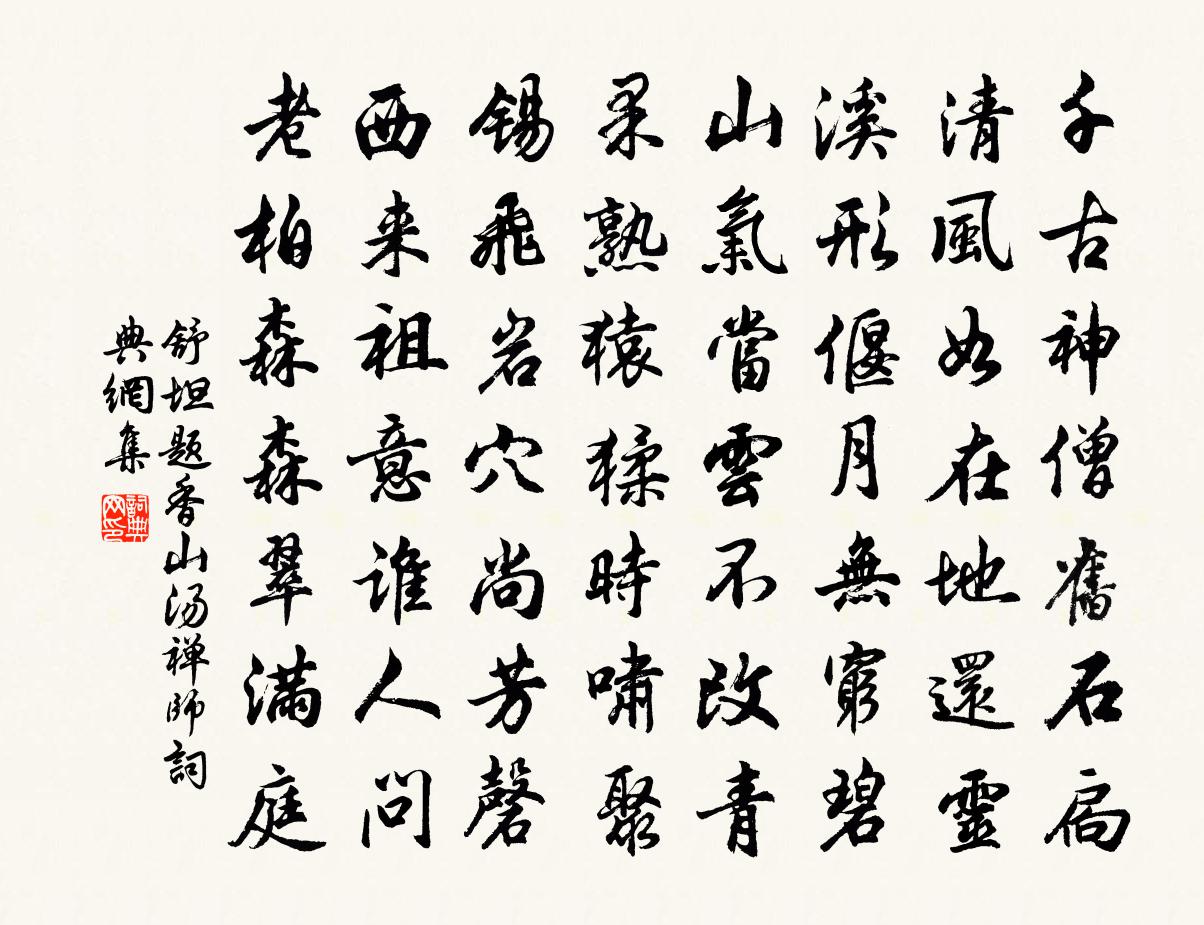 千古神僧舊石扃
清風如在地還靈
溪形偃月無窮碧
山氣當雲不改青
果熟猿猱時嘯聚
錫飛岩穴尚芳馨
西来祖意谁人問
老柏森森翠满庭
舒坦题香山汤禅師詞
典網集
詞典網印